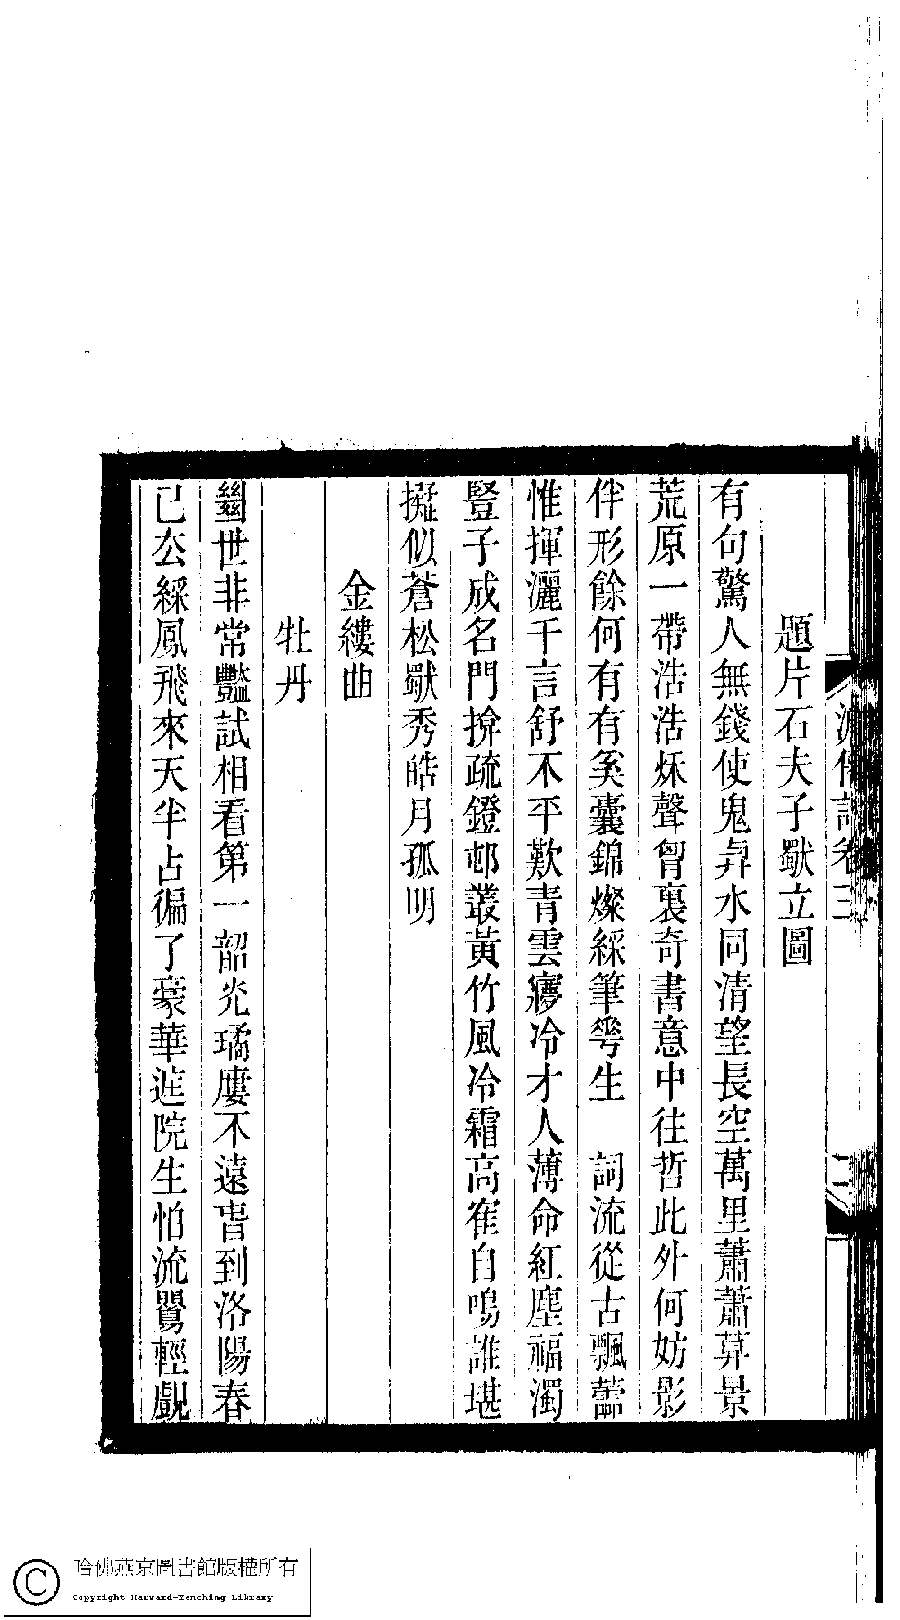 題片石夫子獨立圖
有句驚人無錢使鬼昇水同清望長空萬里蕭蕭莫景
荒原一帶浩浩秌聲胷裏奇書意中往哲此外何妨影
伴形餘何有有奚囊錦燦綵筆蕚生　詞流從古飄蕭
惟揮灑千言舒不平歎青雲㝱冷才人薄命紅塵福濁
豎子成名門掩疏鐙邨叢黃竹風冷霜高寉自鳴誰堪
擬似蒼松獨秀皓月孤明
金縷曲
牡丹
絕世非常豔試相看第一韶光璚廔不遠峕到洛陽春
已公綵鳳飛來天半占徧了豪華逩院生怕流鶯輕覰
卷三
二
哈佛燕京圖書館版權所有
Copyright Harvard-Yenching Library